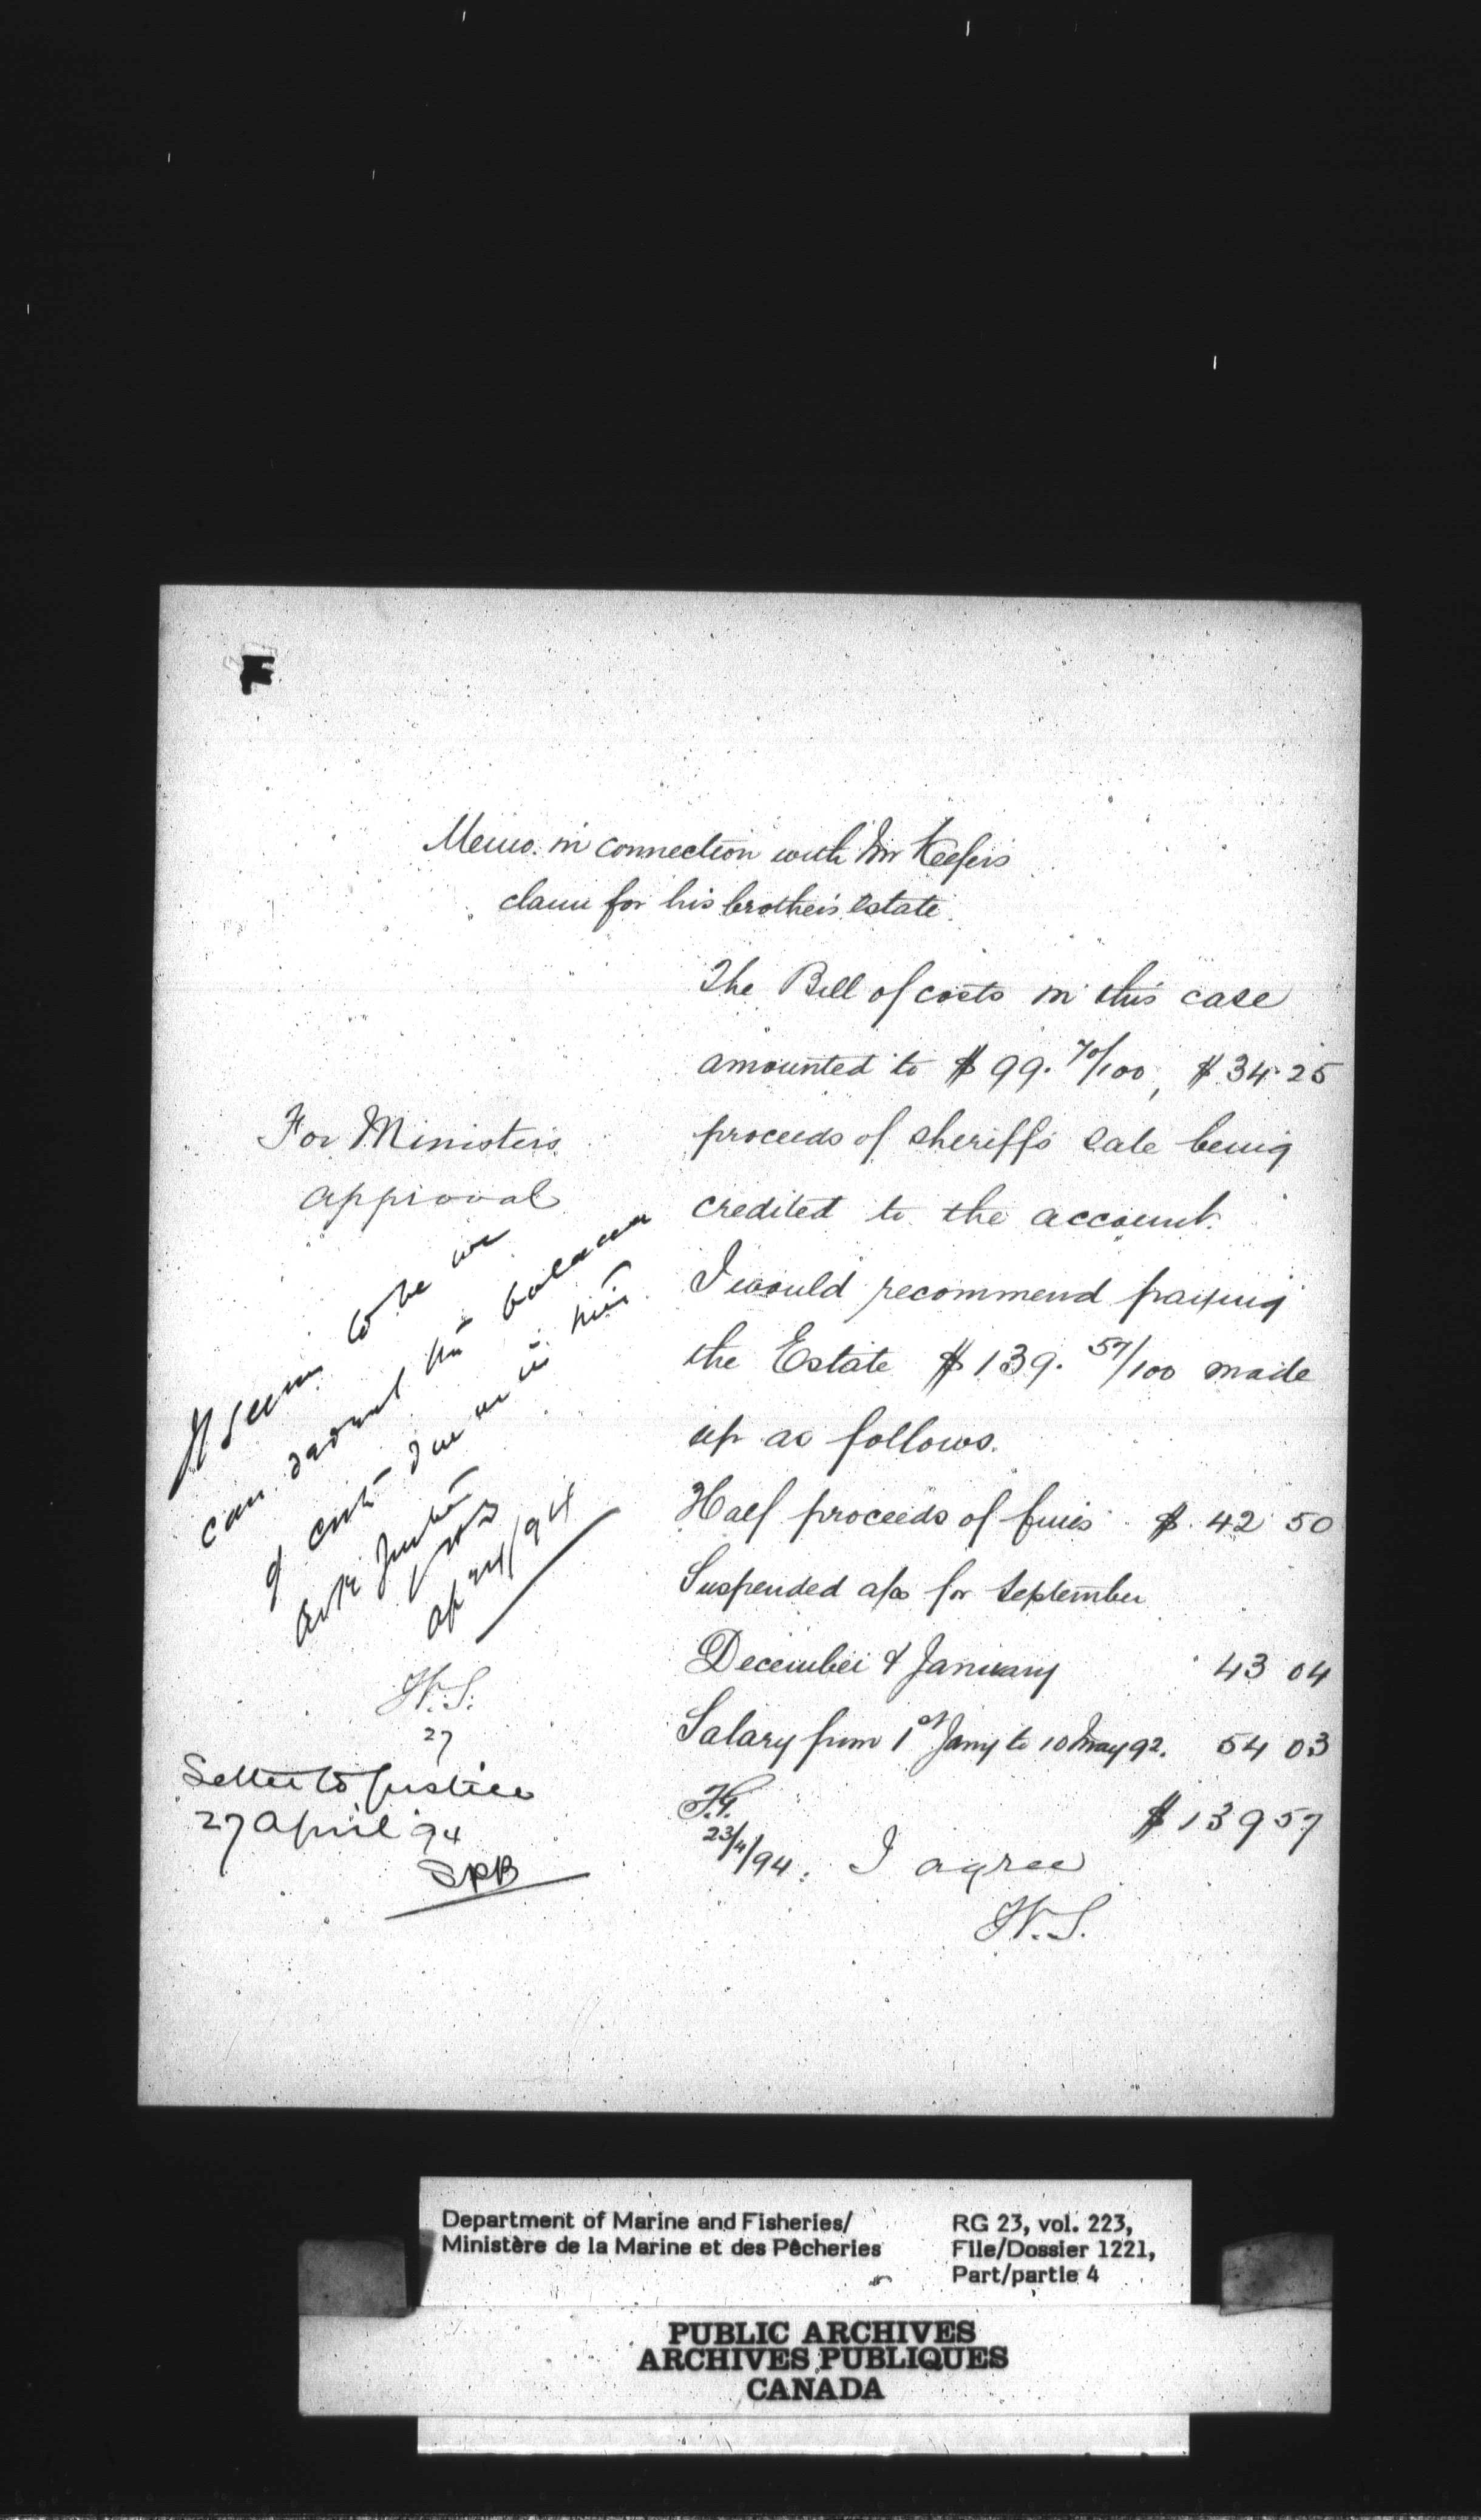 F
Memo. in connection with Mr Keefers
claim for his brother's Estate.
The Bill of costs in this case
amounted to $99. 70/100, $34.25
proceeds of sheriff's sale being
credited to the account.
I would recommend paying
the Estate $139. 57/100 made
up as follows.
Half proceeds of fines $. 42 50
Suspended a/cs for September
December & January 43 04
Salary from 1st Jany to 10 May 92. 54 03
$139 57
F.G.
23/4/94.
I agree
W.S.
For Ministers
approval
It seems to me we
can deduct the balance
of costs due
Ask Justice
Ap 24/94
W.S.
27
Letter to Justice
27 April 94
SPB
Department of Marine and Fisheries/
Ministère de la Marine et des Pêcheries
RG 23, vol. 223,
File/Dossier 1221,
Part/partie 4
PUBLIC ARCHIVES
ARCHIVES PUBLIQUES
CANADA